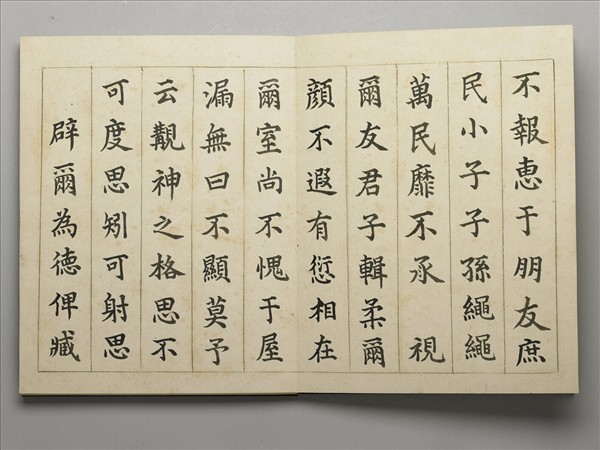 不報恵于朋友庶
民小子子孫繩繩
萬民靡不承　視
爾友君子輯柔爾
顔不遐有愆相在
爾室尚不愧于屋
漏無曰不顯莫予
云覯神之格思不
可度思矧可射思
辟爾為德俾臧